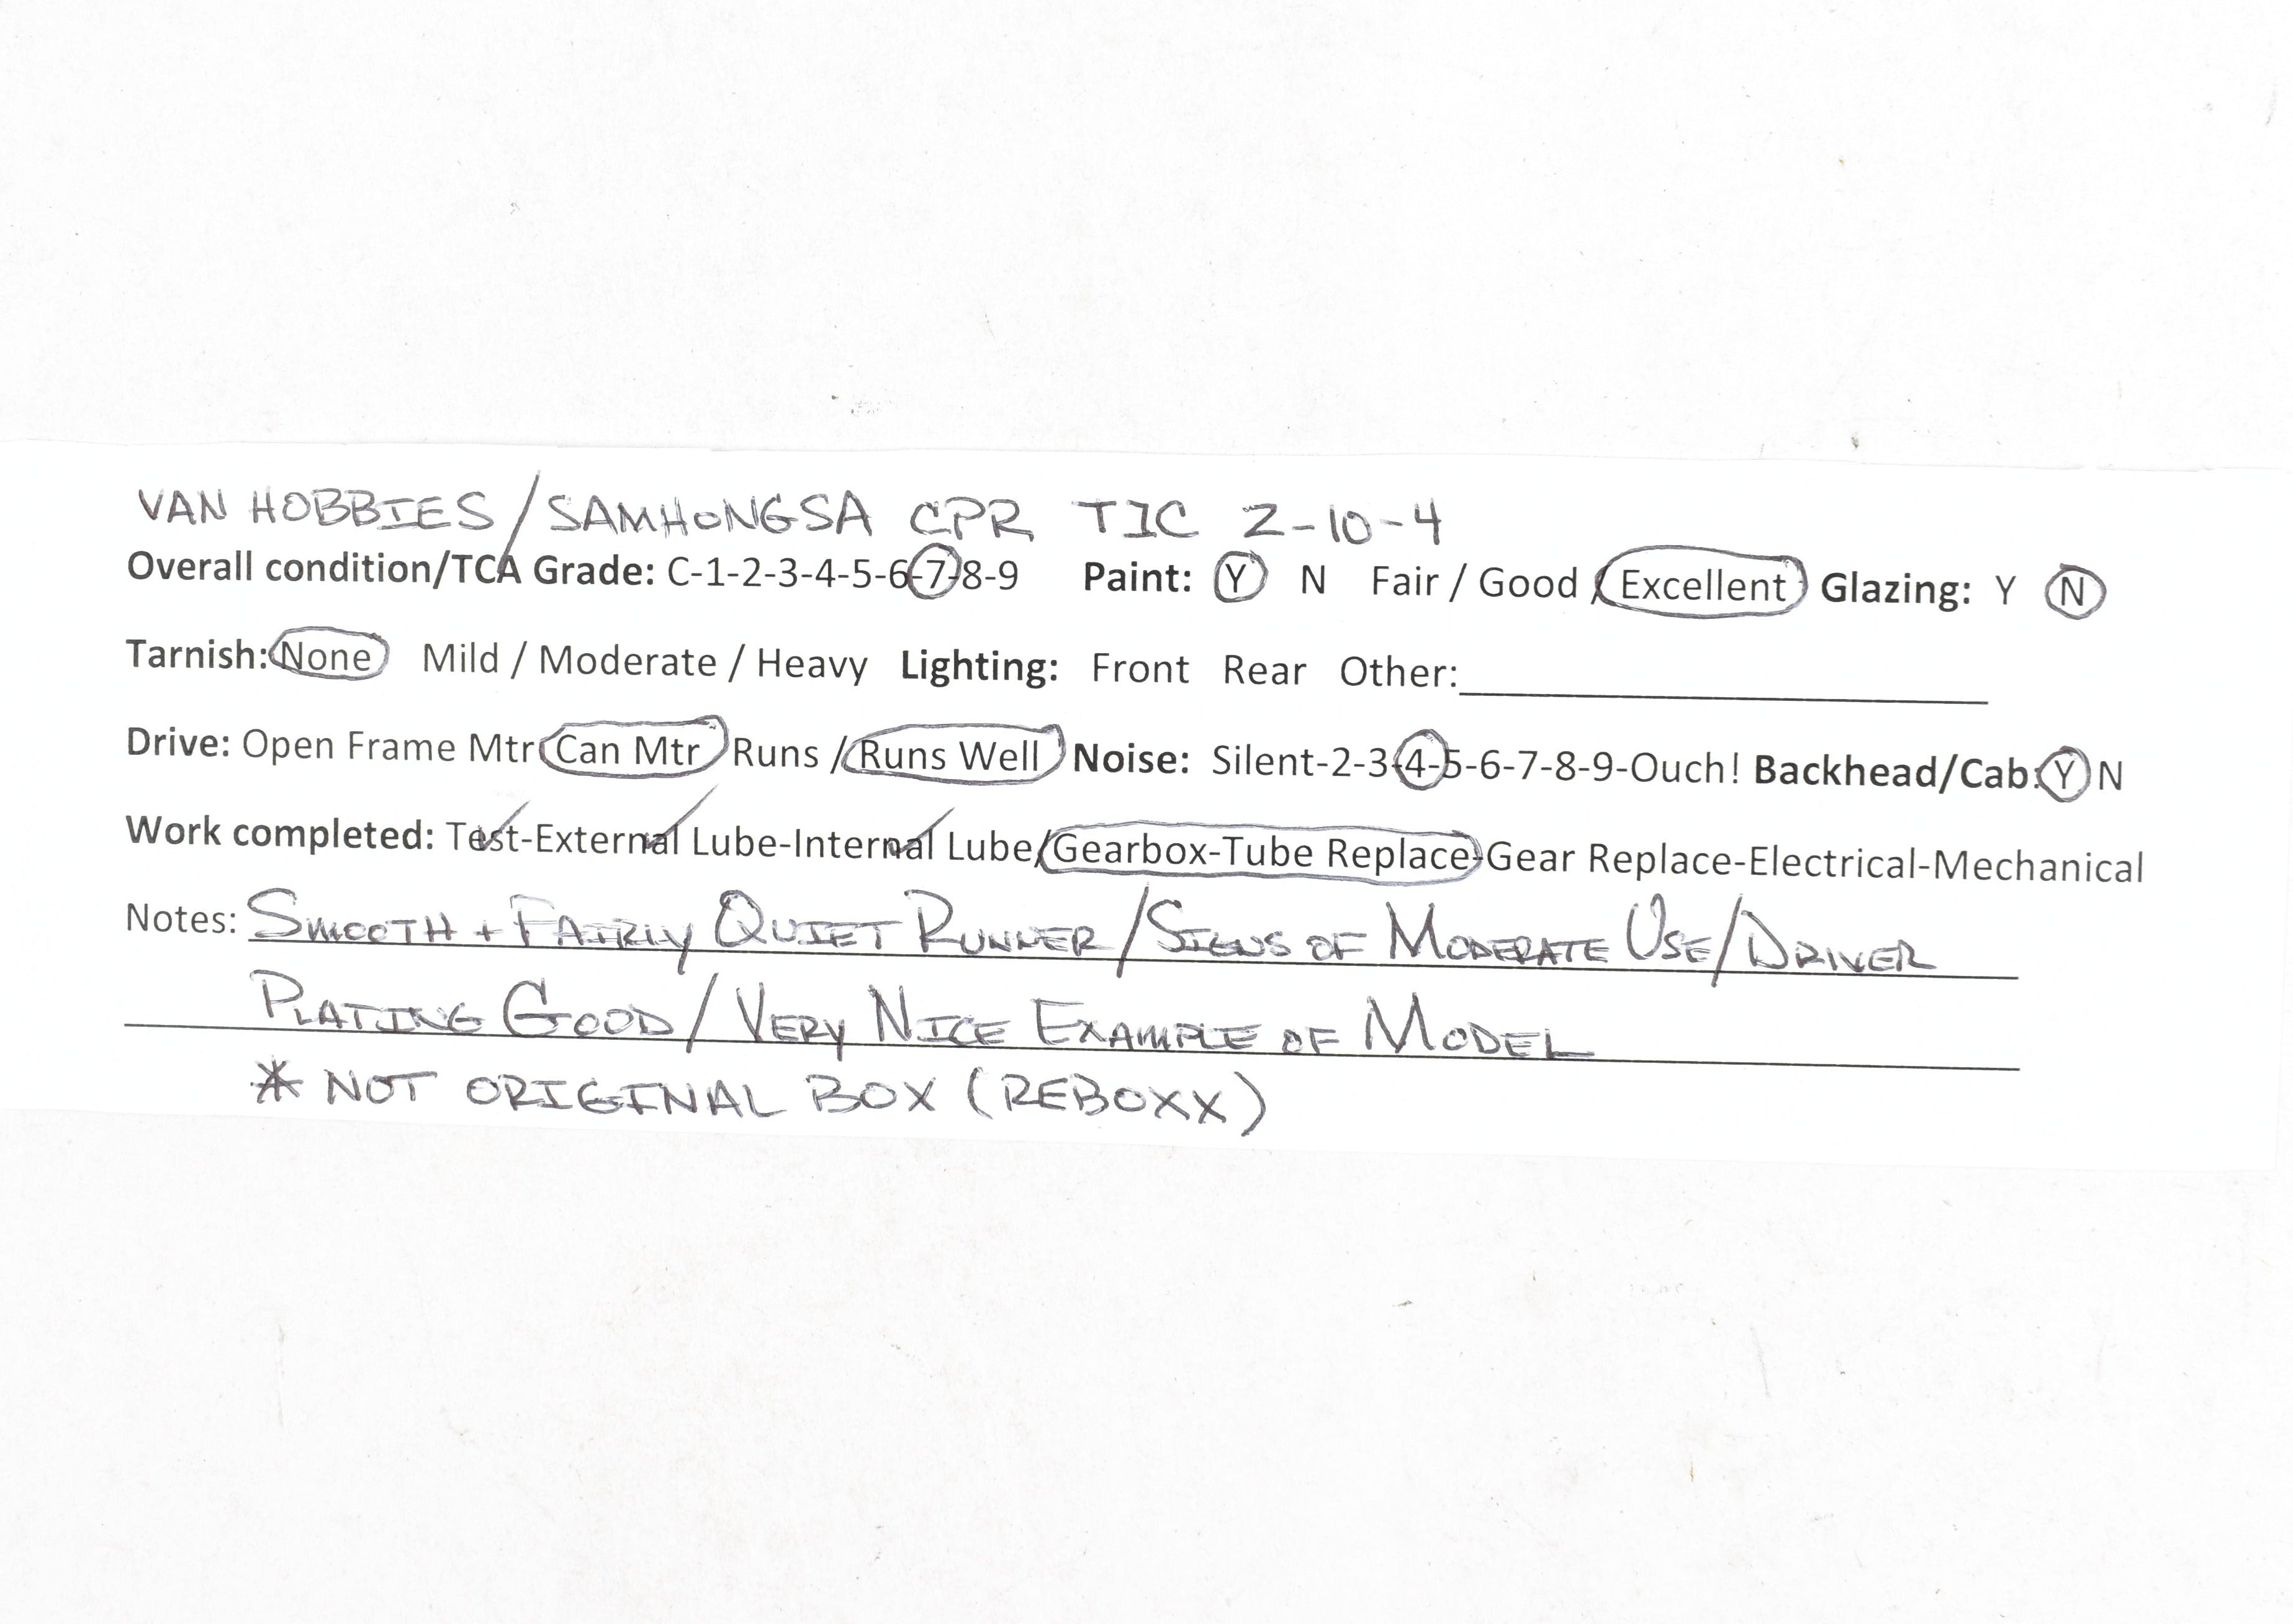 VAN HOBBIES/SAMHONGSA CPR TIC 2-10-4
Overall condition/TCA Grade: C-1-2-3-4-5-6-7-8-9 Paint: Y N Fair / Good / Excellent Glazing: Y N
Tarnish: None Mild / Moderate / Heavy Lighting: Front Rear Other:
Drive: Open Frame Mtr Can Mtr Runs / Runs Well Noise: Silent-2-3-4-5-6-7-8-9-Ouch! Backhead/Cab: Y N
Work completed: Test-External Lube-Internal Lube/Gearbox-Tube Replace-Gear Replace-Electrical-Mechanical
Notes: SMOOTH + FAIRLY QUIET RUNNER/SIGNS OF MODERATE USE/DRIVER
PLATING GOOD/VERY NICE EXAMPLE OF MODEL
* NOT ORIGINAL BOX (REBOXX)